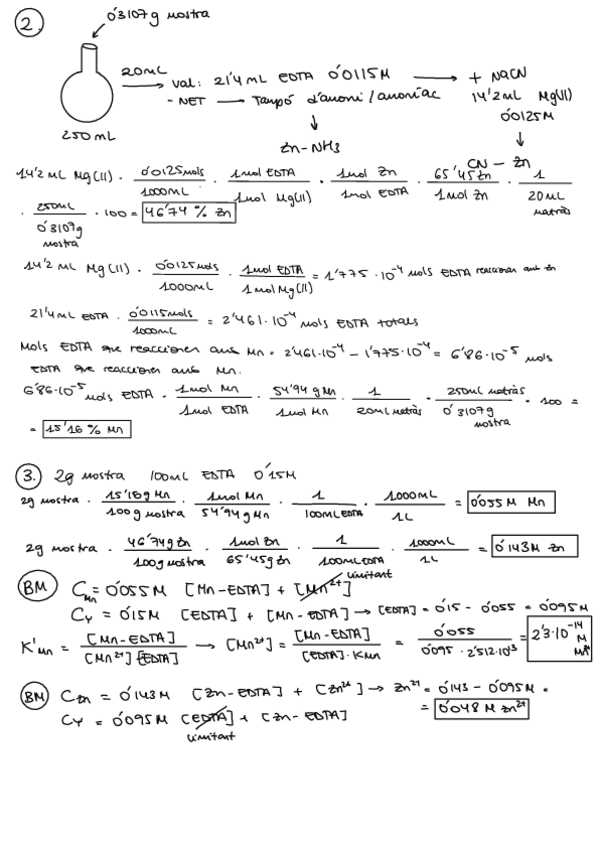 2. 0'3107g mostra
20mL → val: 21'4 mL EDTA 0'0115M → + NaCN
- NET → Tampó d'amoni/amoníac 14'2mL Mg(II) 0'0125M
250mL ↓ Zn-NH3 ↓ CN - Zn
14'2 mL Mg(II) · 0'0125mols/1000mL · 1mol EDTA/1mol Mg(II) · 1mol Zn/1mol EDTA · 65'45 Zn/1mol Zn · 1/20mL matràs
· 250mL/0'3107g mostra · 100 = 46'74 % Zn
14'2 mL Mg(II) · 0'0125mols/1000mL · 1mol EDTA/1mol Mg(II) = 1'775 · 10^-4 mols EDTA reaccionen amb Zn
21'4mL EDTA · 0'0115mols/1000mL = 2'461·10^-4 mols EDTA totals
Mols EDTA que reaccionen amb Mn = 2'461·10^-4 - 1'775·10^-4 = 6'86·10^-5 mols
EDTA que reaccionen amb Mn.
6'86·10^-5 mols EDTA · 1mol Mn/1mol EDTA · 54'94 g Mn/1mol Mn · 1/20mL matràs · 250mL matràs/0'3107g mostra · 100 =
= 15'16 % Mn
3. 2g mostra 100mL EDTA 0'15M
2g mostra · 15'16g Mn/100g mostra · 1mol Mn/54'94g Mn · 1/100mL EDTA · 1000mL/1L = 0'055 M Mn
2g mostra · 46'74g Zn/100g mostra · 1mol Zn/65'45g Zn · 1/100mL EDTA · 1000mL/1L = 0'143M Zn
BM C Mn = 0'055M [Mn-EDTA] + [Mn2+] limitant
Cy = 0'15M [EDTA] + [Mn-EDTA] → [EDTA] = 0'15 - 0'055 = 0'095M
K'Mn = [Mn-EDTA]/[Mn2+][EDTA] → [Mn2+] = [Mn-EDTA]/[EDTA]·KMn = 0'055/0'095 · 2'512·10^13 = 2'3·10^-14 M
BM CZn = 0'143M [Zn-EDTA] + [Zn2+] → Zn2+ = 0'143 - 0'095M =
Cy = 0'095M [EDTA] + [Zn-EDTA] = 0'048 M Zn2+
limitant